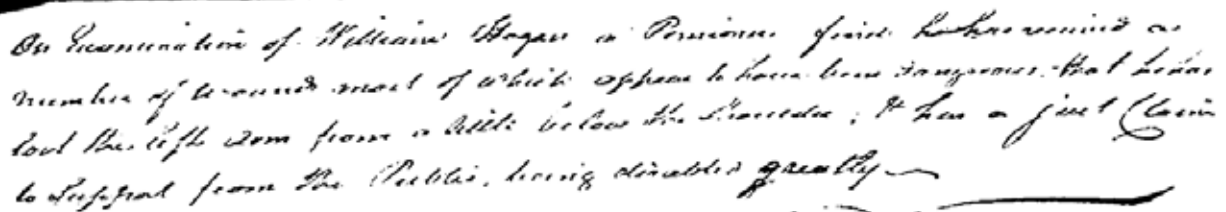 On Examination of William Hogan a Pensioner find he has received a
number of wounds most of which appear to have been dangerous. that he has
lost the left arm from a little below the Shoulder; & has a just Claim
to Support from the Public, being disabled greatly